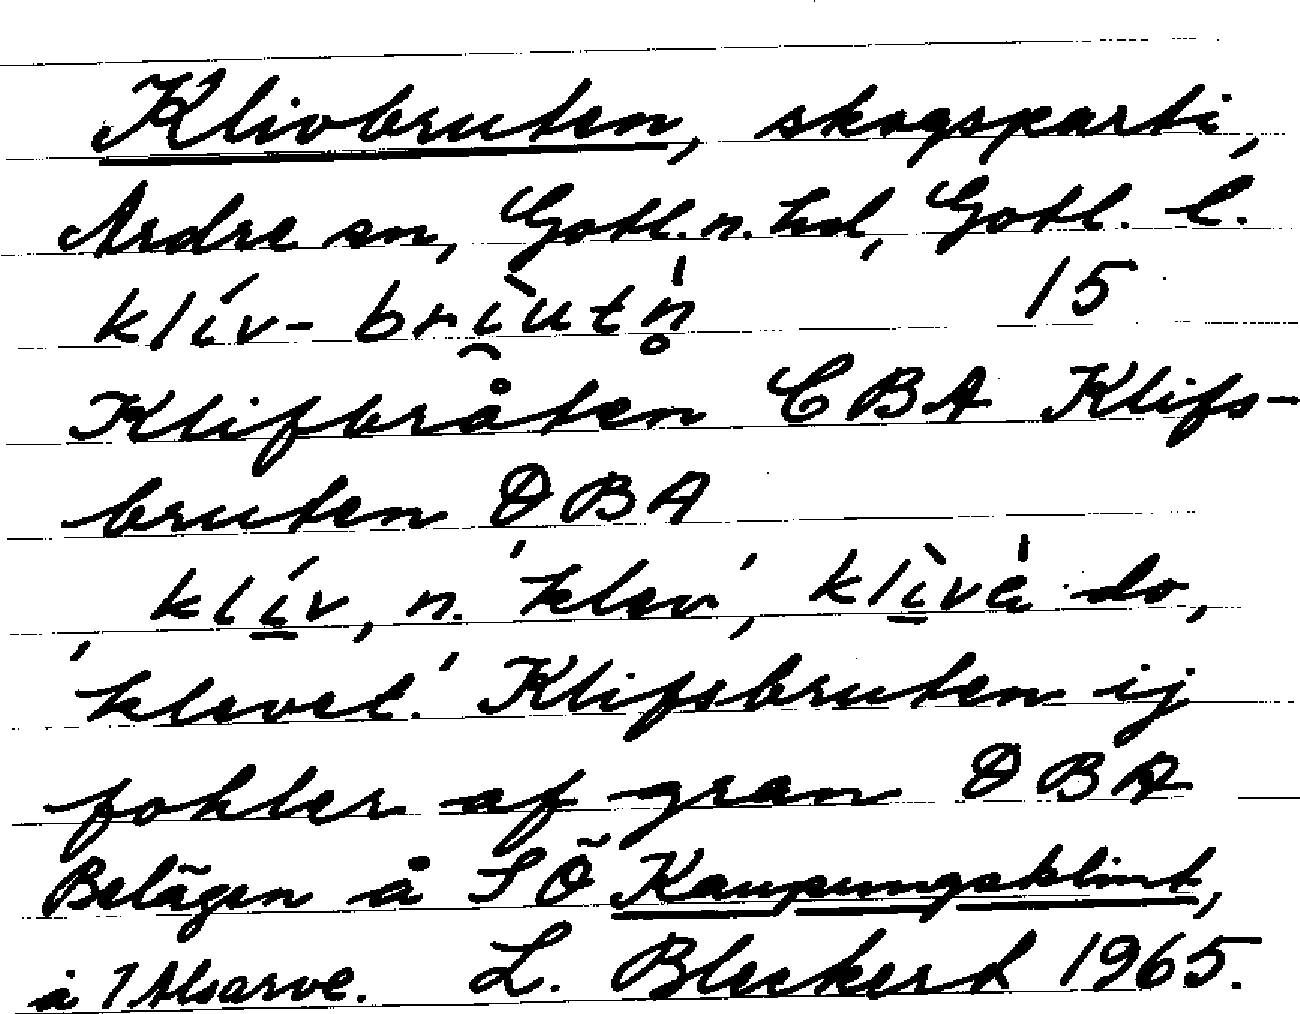 Klivbruten, skogsparti,
Ardre sn, Gotl. n. hd, Gotl. l.
klív-brìutn̥̍ 15
Klifbråten CBA Klifs-
bruten DBA
klí̱v, n. 'klev', klì̱va̍ do,
'klevet.' Klifsbruten ij
fohler af gran DBA
Belägen å SÖ Kaupungsklint,
å 1 Alsarve. L. Bleckert 1965.